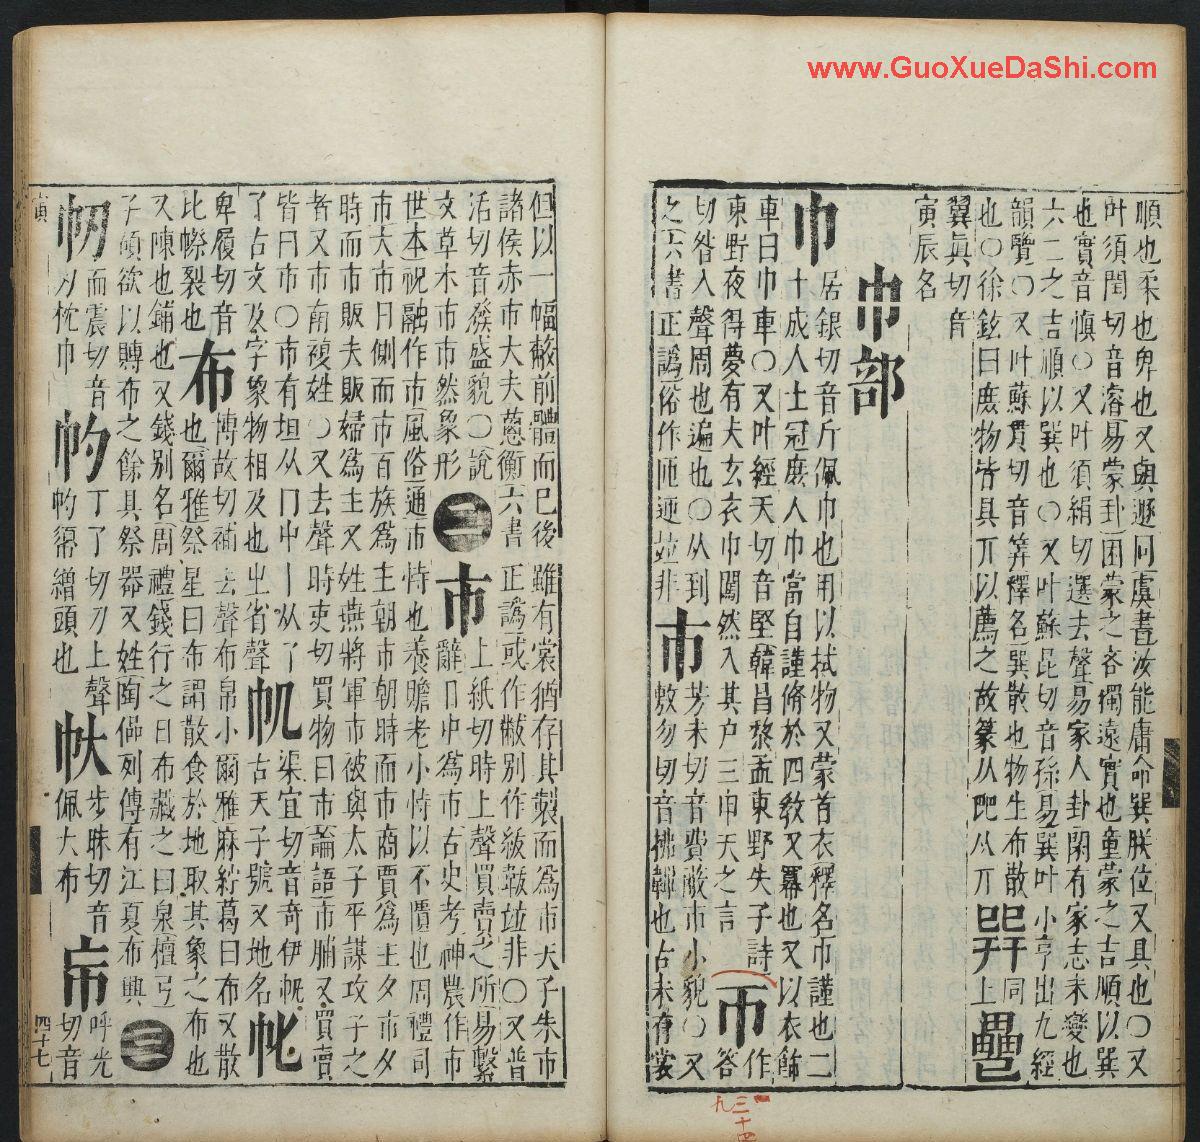 www.GuoXueDaShi.com
順也柔也卑也又與遜同虞書汝能庸命巽朕位又具也〇又
叶須閏切音濬易蒙卦困蒙之吝獨遠實也童蒙之吉順以巽
也實音愼〇又叶須絹切選去聲易家人卦閑有家志未變也
六二之吉順以巽也〇又叶蘇昆切音孫易巽叶小亨出九經
韻覽〇又叶蘇貫切音筭釋名巽散也物生布散𢁉𢁅同
也〇徐鉉曰庶物皆具丌以薦之故篆从㔾从丌上
翼眞切音
寅辰名
巾部
巾居銀切音斤佩巾也用以拭物又蒙首衣釋名巾謹也二
十成人士冠庶人巾當自謹修於四教又冪也又以衣飾
車曰巾車〇又叶經天切音堅韓昌黎孟東野失子詩
東野夜得夢有夫玄衣巾闖然入其户三申天之言帀作答
切咎入聲周也遍也〇从到
之六書正譌俗作匝迊竝非巿芳未切音費蔽巿小貌〇又
敷勿切音拂韠也古未有裳
但以一幅蔽前體而已後雖有裳猶存其製而爲巿天子朱巿
諸侯赤巿大夫蔥衡六書正譌或作黻别作紱韍竝非〇又普
活切音潑盛貌〇說
文草木巿巿然象形三市上紙切時上聲買賣之所易繫
辭日中爲市古史考神農作市
世本祝融作市風俗通市恃也養贍老小恃以不匱也周禮司
市大市日側而市百族爲主朝市朝時而市商賈爲主夕市夕
時而市販夫販婦爲主又姓燕將軍市被與太子平謀攻子之
者又市南複姓〇又去聲時吏切買物曰市論語市脯又買賣
皆曰市〇市有垣从冂中丨从
了古文及字象物相及也㞢省聲帆渠宜切音奇伊帆
古天子號又地名㠲
卑履切音
比㡜裂也布博故切補去聲布帛小爾雅麻紵葛曰布又散
也爾雅祭星曰布謂散食於地取其象之布也
又陳也鋪也又錢别名周禮錢行之曰布藏之曰泉檀弓
子碩欲以賻布之餘具祭器又姓陶侃列傳有江夏布興三
㠴而震切音
刃枕巾㠷丁了切刁上聲
㠷𢃃繒頭也㠸步昧切音
佩大布㠵呼光
切音
寅
四十七
三十四
九